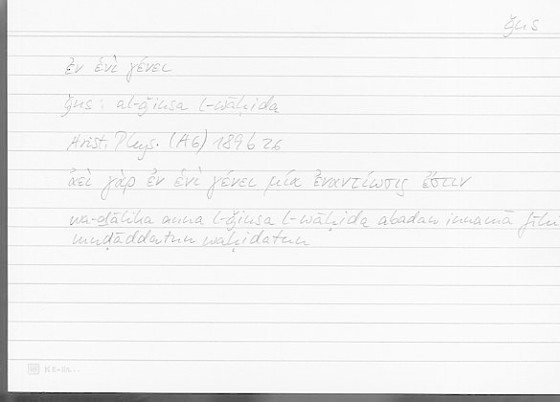 ǧns
ἐν ἑνὶ γένει
ǧns: al-ǧinsa l-wāḥida
Arist. Phys. (A6) 189b26
ἀεὶ γὰρ ἐν ἑνὶ γένει μία ἐναντίωσις ἔστιν
wa-ḏālika anna l-ǧinsa l-wāḥida abadan innamā fīhi
muḍāddatun wāḥidatun